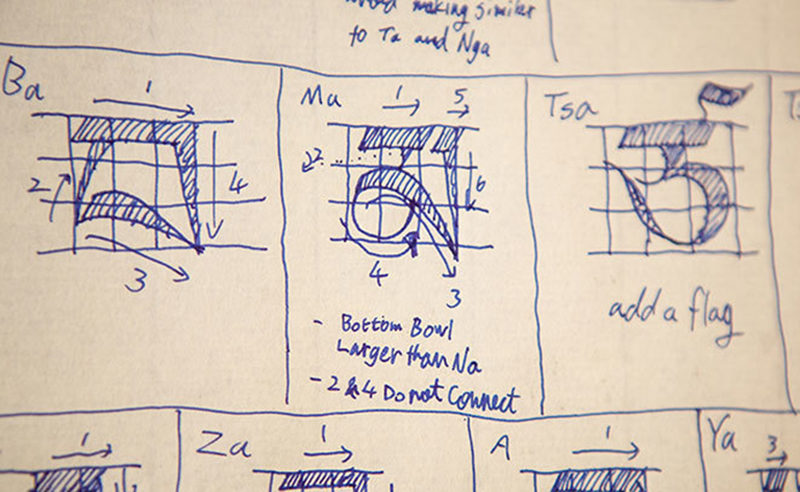 making similar
to Ta and Nga
Ba
1
2
3
4
Ma
1
5
2
6
4
3
- Bottom Bowl
Larger than Na
- 2 & 4 Do not Connect
Tsa
add a flag
1
Za
1
A
1
Ya
3